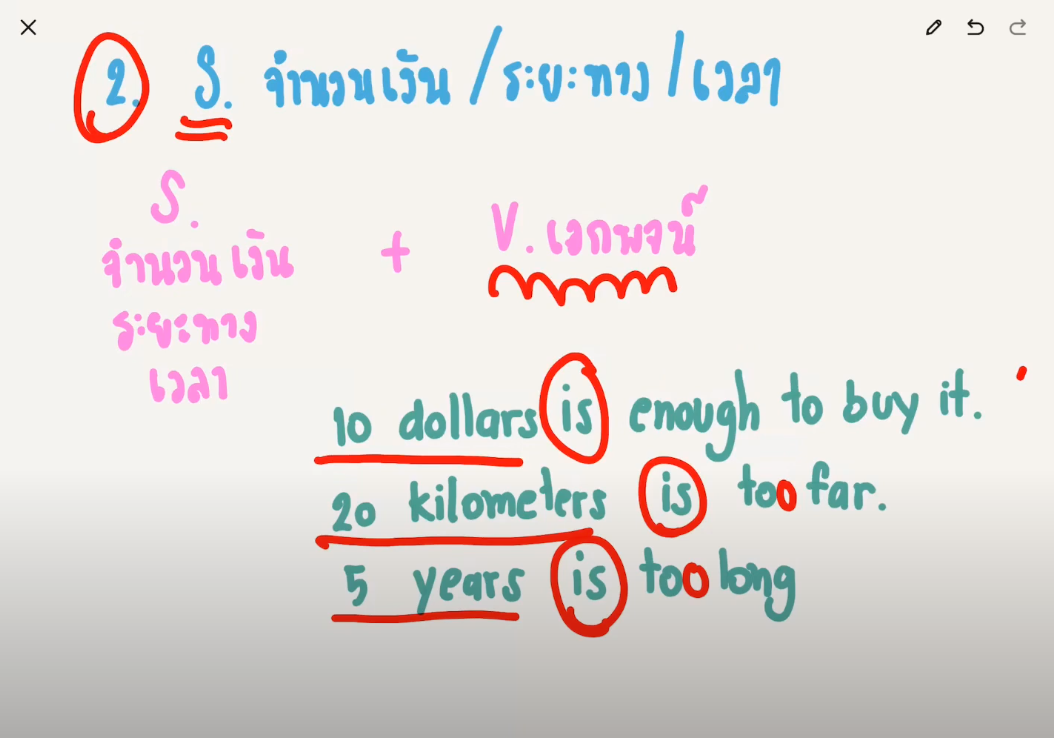 2. S. จำนวนเงิน / ระยะทาง / เวลา
S.
จำนวนเงิน + V. เอกพจน์
ระยะทาง
เวลา
10 dollars is enough to buy it.
20 kilometers is too far.
5 years is too long